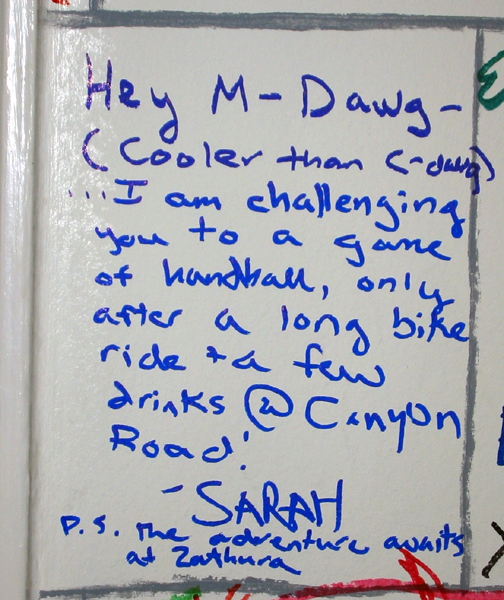 Hey M-Dawg-
(Cooler than C-dawg)
...I am challenging
you to a game
of handball, only
after a long bike
ride + a few
drinks @ Canyon
Road!
- SARAH
P.S. The adventure awaits
at Zathura